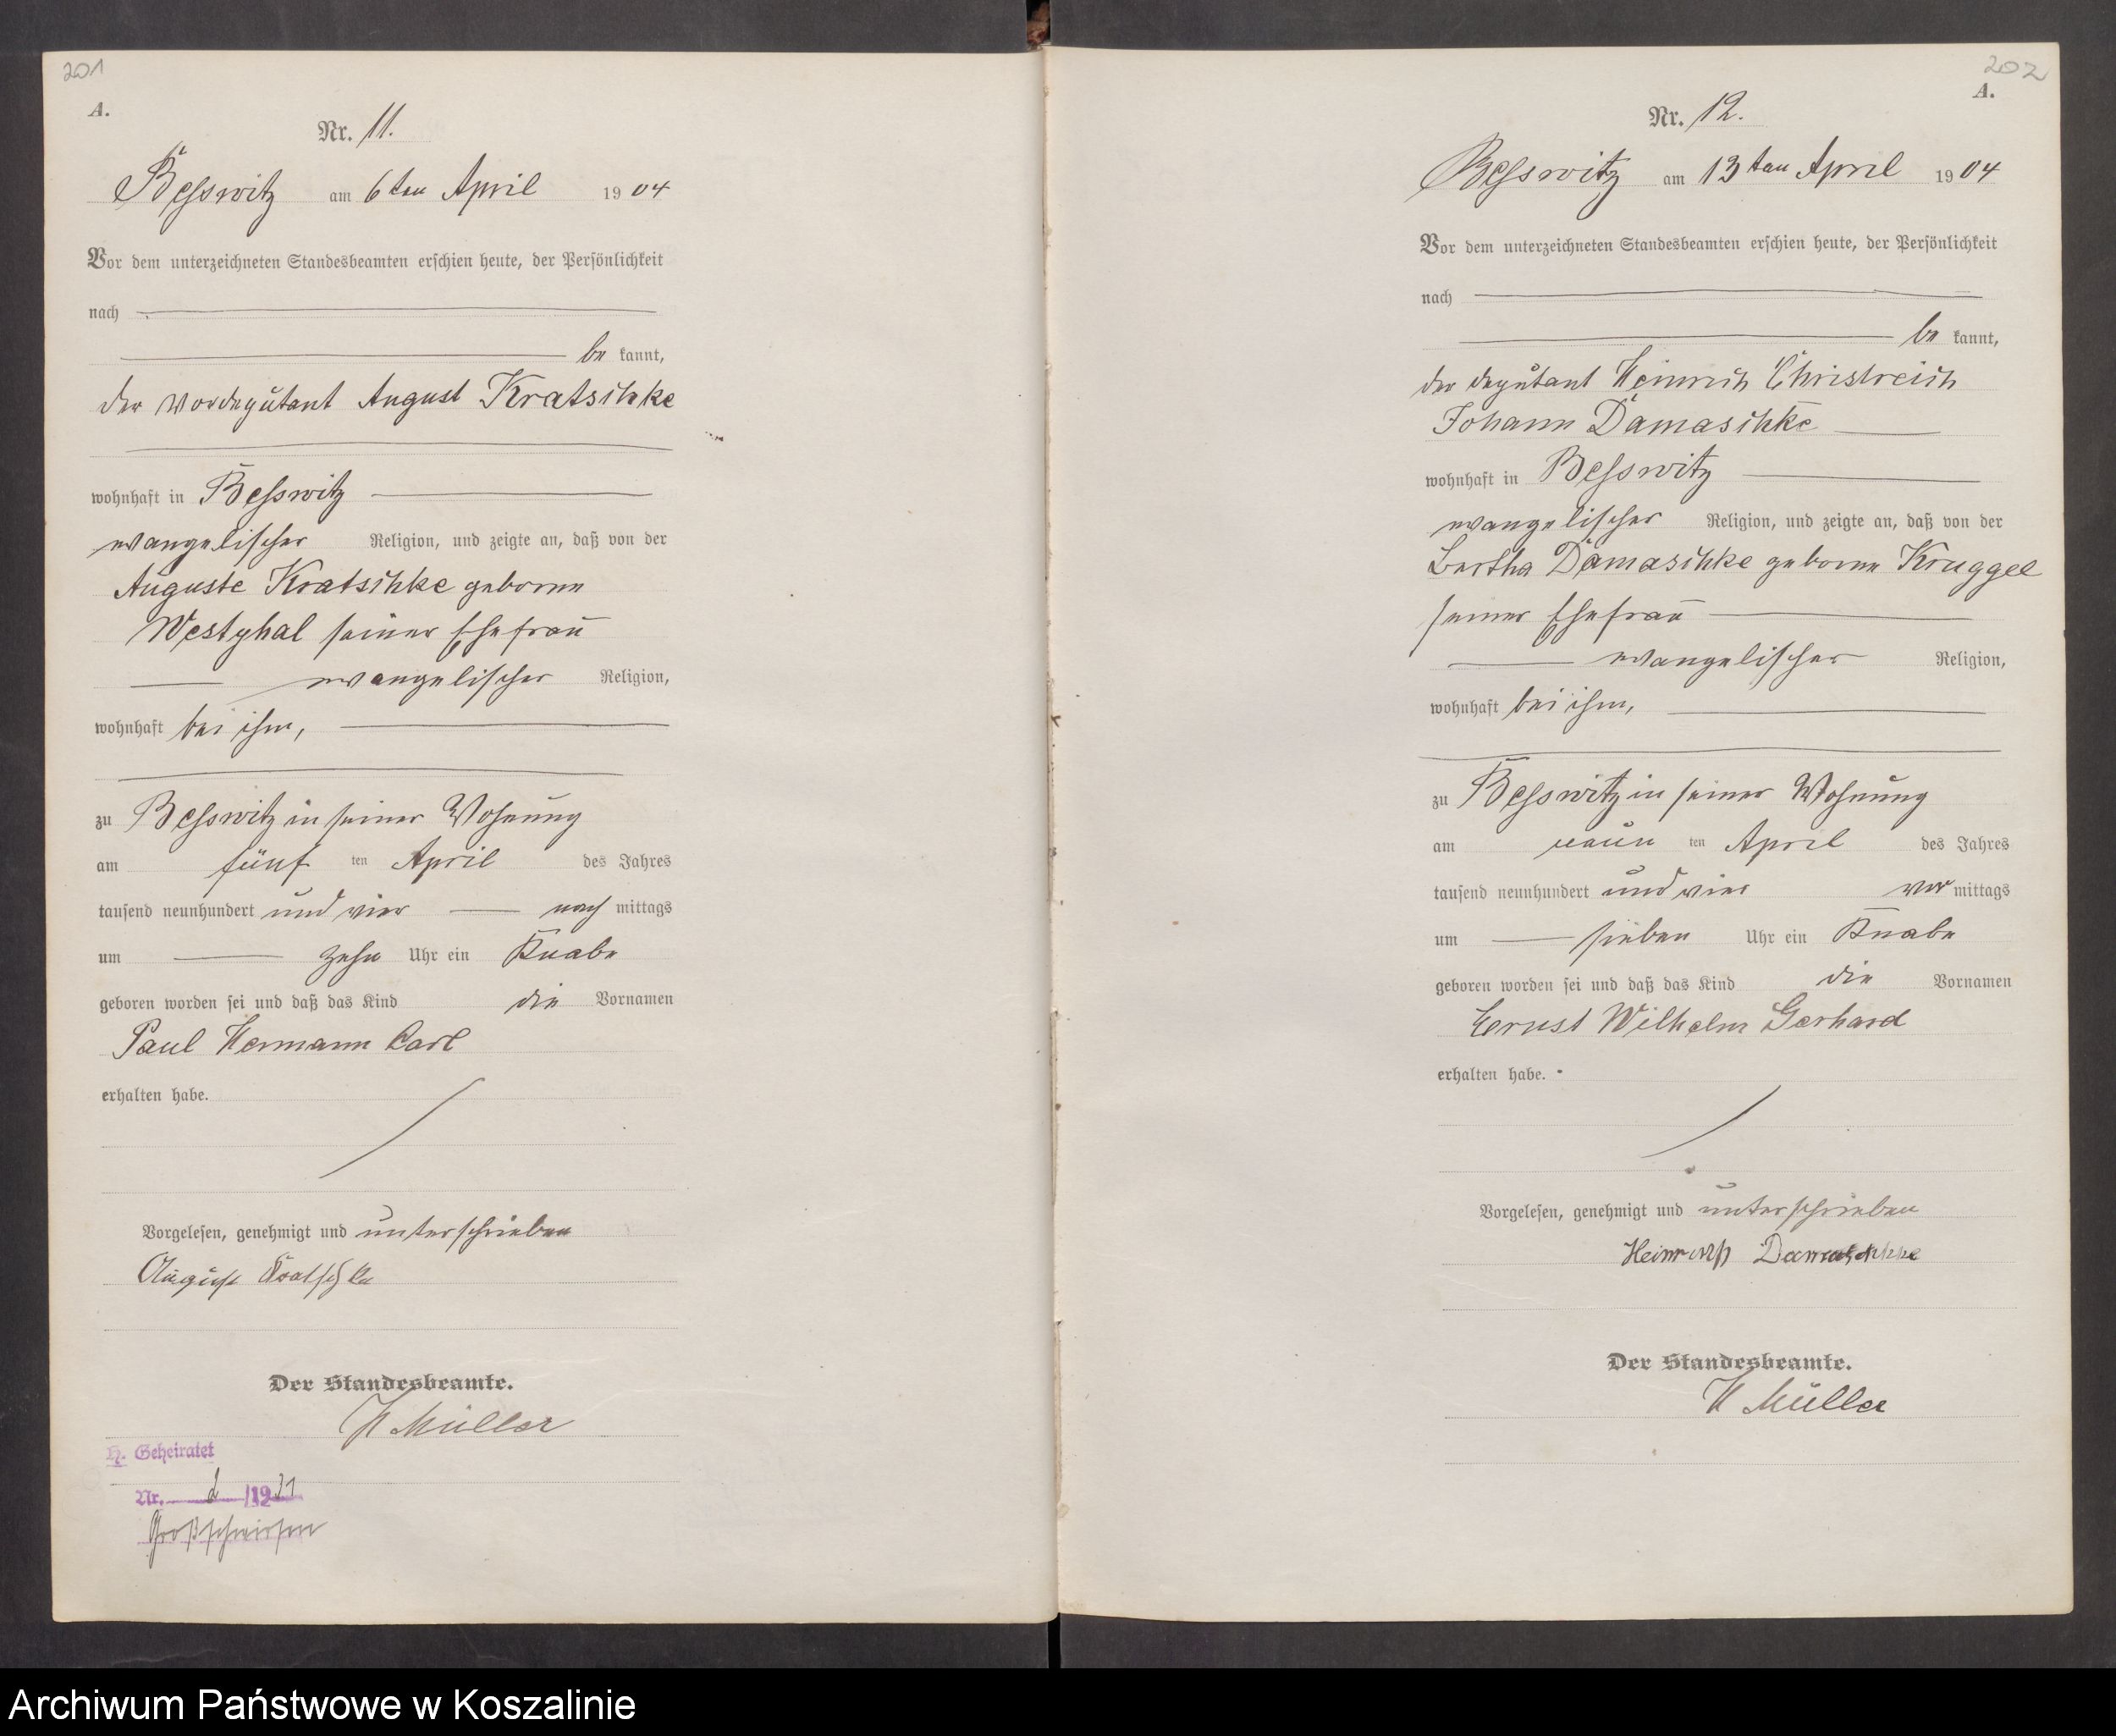 201
A.
Nr. 11.
Besswitz am 6ten April 1904
Vor dem unterzeichneten Standesbeamten erschien heute, der Persönlichkeit
nach
be kannt,
der Vordeputant August Kratschke
wohnhaft in Besswitz
evangelischer Religion, und zeigte an, daß von der
Auguste Kratschke geborne
Westphal seiner Ehefrau
evangelischer Religion,
wohnhaft bei ihm,
zu Besswitz in seiner Wohnung
am fünf ten April des Jahres
tausend neunhundert und vier nach mittags
um zehn Uhr ein Knabe
geboren worden sei und daß das Kind die Vornamen
Paul Hermann Carl
erhalten habe.
Vorgelesen, genehmigt und unterschrieben
August Kratschke
Der Standesbeamte.
H Müller
H. Geheiratet
Nr. 2 /1931
Großschwirsen
202
A.
Nr. 12.
Besswitz am 13ten April 1904
Vor dem unterzeichneten Standesbeamten erschien heute, der Persönlichkeit
nach
be kannt,
der Deputant Heinrich Christreich
Johann Damaschke
wohnhaft in Besswitz
evangelischer Religion, und zeigte an, daß von der
Bertha Damaschke geborne Kruggel
seiner Ehefrau
evangelischer Religion,
wohnhaft bei ihm,
zu Besswitz in seiner Wohnung
am neun ten April des Jahres
tausend neunhundert und vier vor mittags
um sieben Uhr ein Knabe
geboren worden sei und daß das Kind die Vornamen
Ernst Wilhelm Gerhard
erhalten habe.
Vorgelesen, genehmigt und unterschrieben
Heinrich Damaschke
Der Standesbeamte.
H Müller
Archiwum Państwowe w Koszalinie